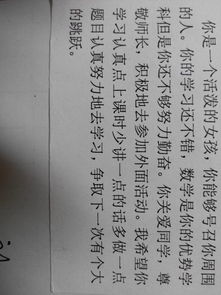 你是一个活泼的女孩，你能够号召你周围
的人。你的学习还不错，数学是你的优势学
科但是你还不够努力勤奋。你关爱同学，尊
敬师长，积极地去参加外面活动。我希望你
学习认真点上课时少讲一点的话多做一点
题目认真努力地去学习，争取下一次有个大
的跳跃。